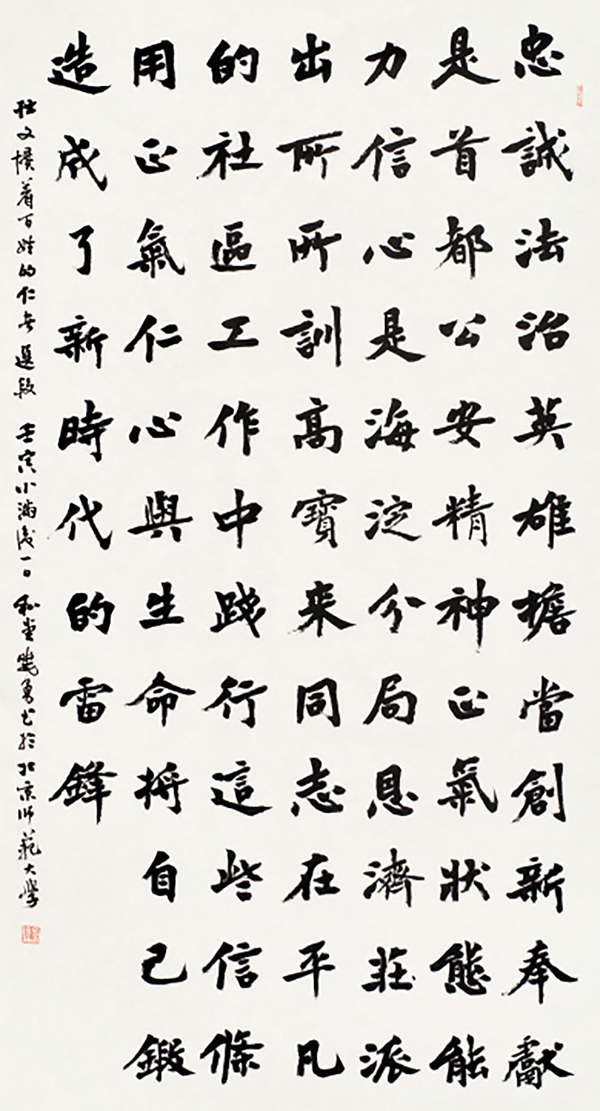 忠誠法治英雄擔當創新奉獻
是首都公安精神正氣狀態能
力信心是海淀分局恩濟莊派
出所所訓高寶来同志在平凡
的社區工作中踐行這些信條
用正氣仁心與生命將自己鍛
造成了新時代的雷鋒
着百姓的仁者選段壬寅小滿後一日和堂勇书於北京师範大學